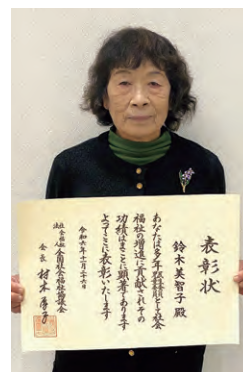 表彰状
鈴木美智子殿
あなたは多年務組員として社会
福祉の増進に貢献されその
功績はまことに顕著であります
よってここに表彰いたします
令和六年十一月二十六日
社会福祉法人全国社会福祉協議会
会長村木厚子